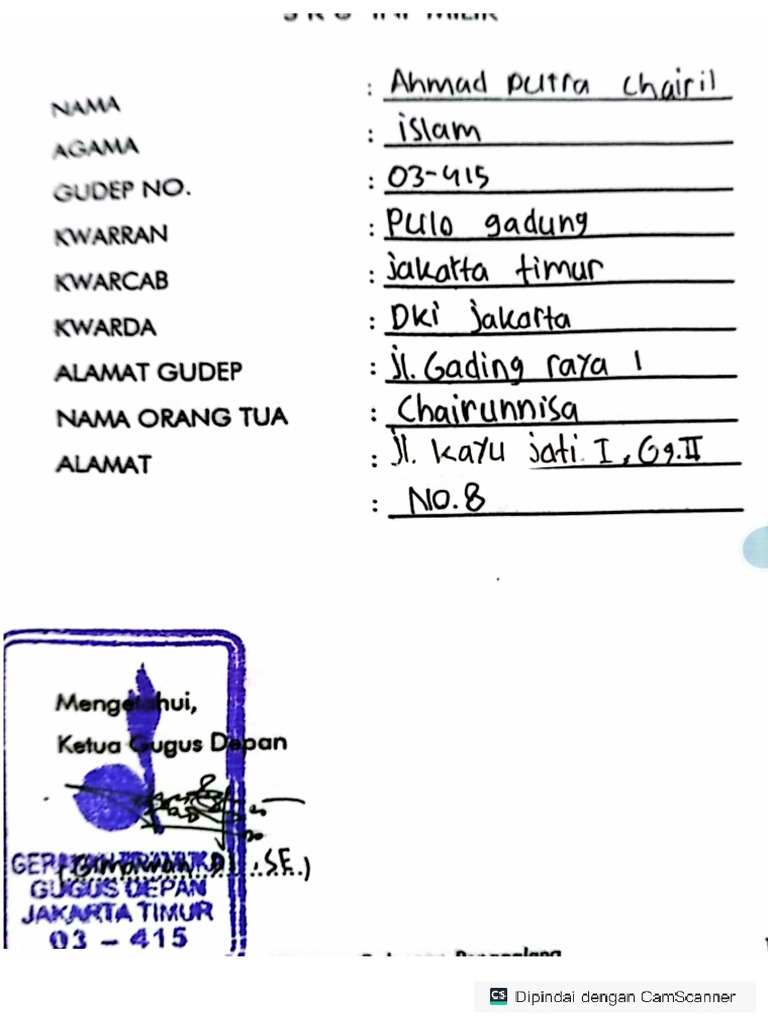 SKU INI MILIK
NAMA : Ahmad putra chairil
AGAMA : islam
GUDEP NO. : 03-415
KWARRAN : Pulo gadung
KWARCAB : jakarta timur
KWARDA : Dki jakarta
ALAMAT GUDEP : jl. Gading raya 1
NAMA ORANG TUA : Chairunnisa
ALAMAT : jl. kayu jati I, Gg. II
: NO. 8
Mengetahui,
Ketua Gugus Depan
SE.)
GUGUS DEPAN
JAKARTA TIMUR
03 - 415
Penggalang
CS Dipindai dengan CamScanner